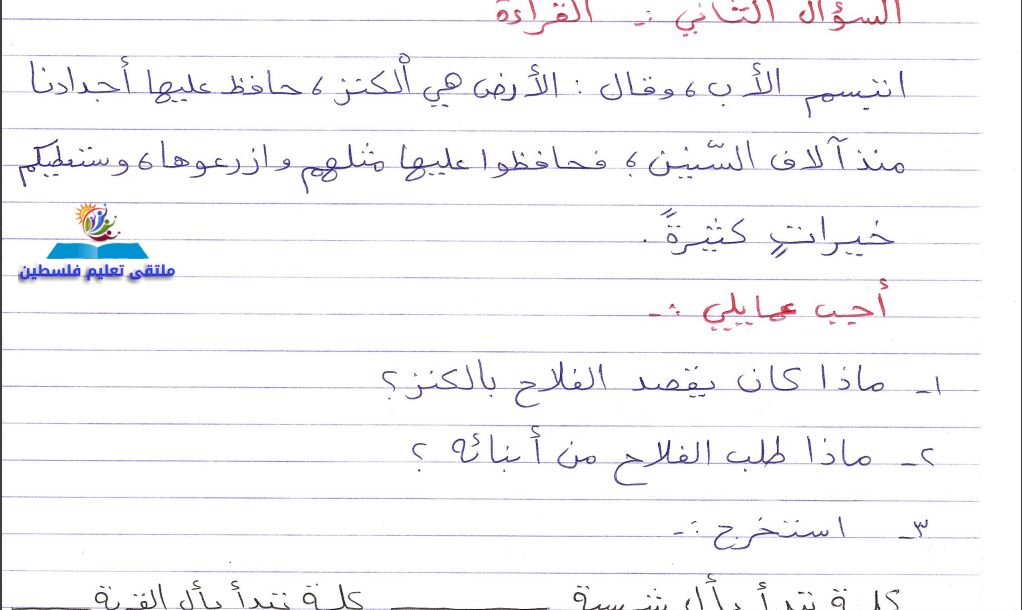 السؤال الثاني :- القراءة
ابتسم الأب ، وقال : الأرض هي الْكنز ، حافظ عليها أجدادنا
منذ آلاف السّنين ، فحافظوا عليها مثلهم وازرعوها ، وستعطيكم
خيراتٍ كثيرةً .
ملتقى تعليم فلسطين
أجيب عما يلي :-
١- ماذا كان يقصد الفلاح بالكنز ؟
٢- ماذا طلب الفلاح من أبنائه ؟
٣- استخرج :-
كلمة تبدأ بأل شمسية ــــــــ كلمة تبدأ بأل القمرية ــــــــ